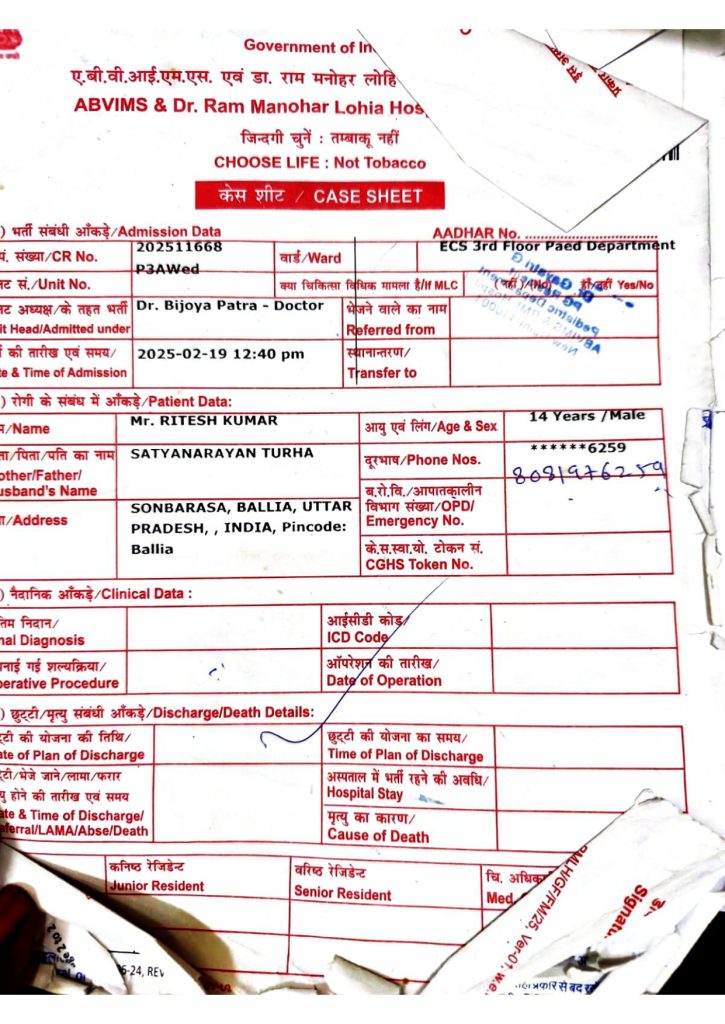 Government of In
ए.बी.वी.आई.एम.एस. एवं डा. राम मनोहर लोहि
ABVIMS & Dr. Ram Manohar Lohia Hos
जिन्दगी चुनें : तम्बाकू नहीं
CHOOSE LIFE : Not Tobacco
केस शीट / CASE SHEET
) भर्ती संबंधी आँकड़े/Admission Data
AADHAR No. ....................................
सं. संख्या/CR No.
202511668
वार्ड/Ward
ECS 3rd Floor Paed Department
P3AWed
सं./Unit No.
क्या चिकित्सा विधिक मामला है/If MLC
(नहीं)/(No)
हाँ/नहीं Yes/No
Dr. Gayatri G
PG Resident
Pediatric Department
अध्यक्ष/के तहत भर्ती
it Head/Admitted under
Dr. Bijoya Patra - Doctor
भेजने वाले का नाम
Referred from
की तारीख एवं समय/
te & Time of Admission
2025-02-19 12:40 pm
स्थानान्तरण/
Transfer to
) रोगी के संबंध में आँकड़े/Patient Data:
/Name
Mr. RITESH KUMAR
आयु एवं लिंग/Age & Sex
14 Years /Male
ता/पिता/पति का नाम
other/Father/
usband's Name
SATYANARAYAN TURHA
दूरभाष/Phone Nos.
******6259
8081976259
/Address
SONBARASA, BALLIA, UTTAR
PRADESH, , INDIA, Pincode:
Ballia
ब.रो.वि./आपातकालीन
विभाग संख्या/OPD/
Emergency No.
के.स.स्वा.यो. टोकन सं.
CGHS Token No.
) नैदानिक आँकड़े/Clinical Data :
तिम निदान/
nal Diagnosis
आईसीडी कोड/
ICD Code
नाई गई शल्यक्रिया/
perative Procedure
ऑपरेशन की तारीख/
Date of Operation
) छुट्टी/मृत्यु संबंधी आँकड़े/Discharge/Death Details:
ट्टी की योजना की तिथि/
ate of Plan of Discharge
छुट्टी की योजना का समय/
Time of Plan of Discharge
ट्टी/भेजे जाने/लामा/फरार
यु होने की तारीख एवं समय
ate & Time of Discharge/
eferral/LAMA/Abse/Death
अस्पताल में भर्ती रहने की अवधि/
Hospital Stay
मृत्यु का कारण/
Cause of Death
कनिष्ठ रेजिडेन्ट
Junior Resident
वरिष्ठ रेजिडेन्ट
Senior Resident
चि. अधिका
Med.
RMLH/GF/FM/25, Ver-01, w.e.
Signatu
6-24, REV